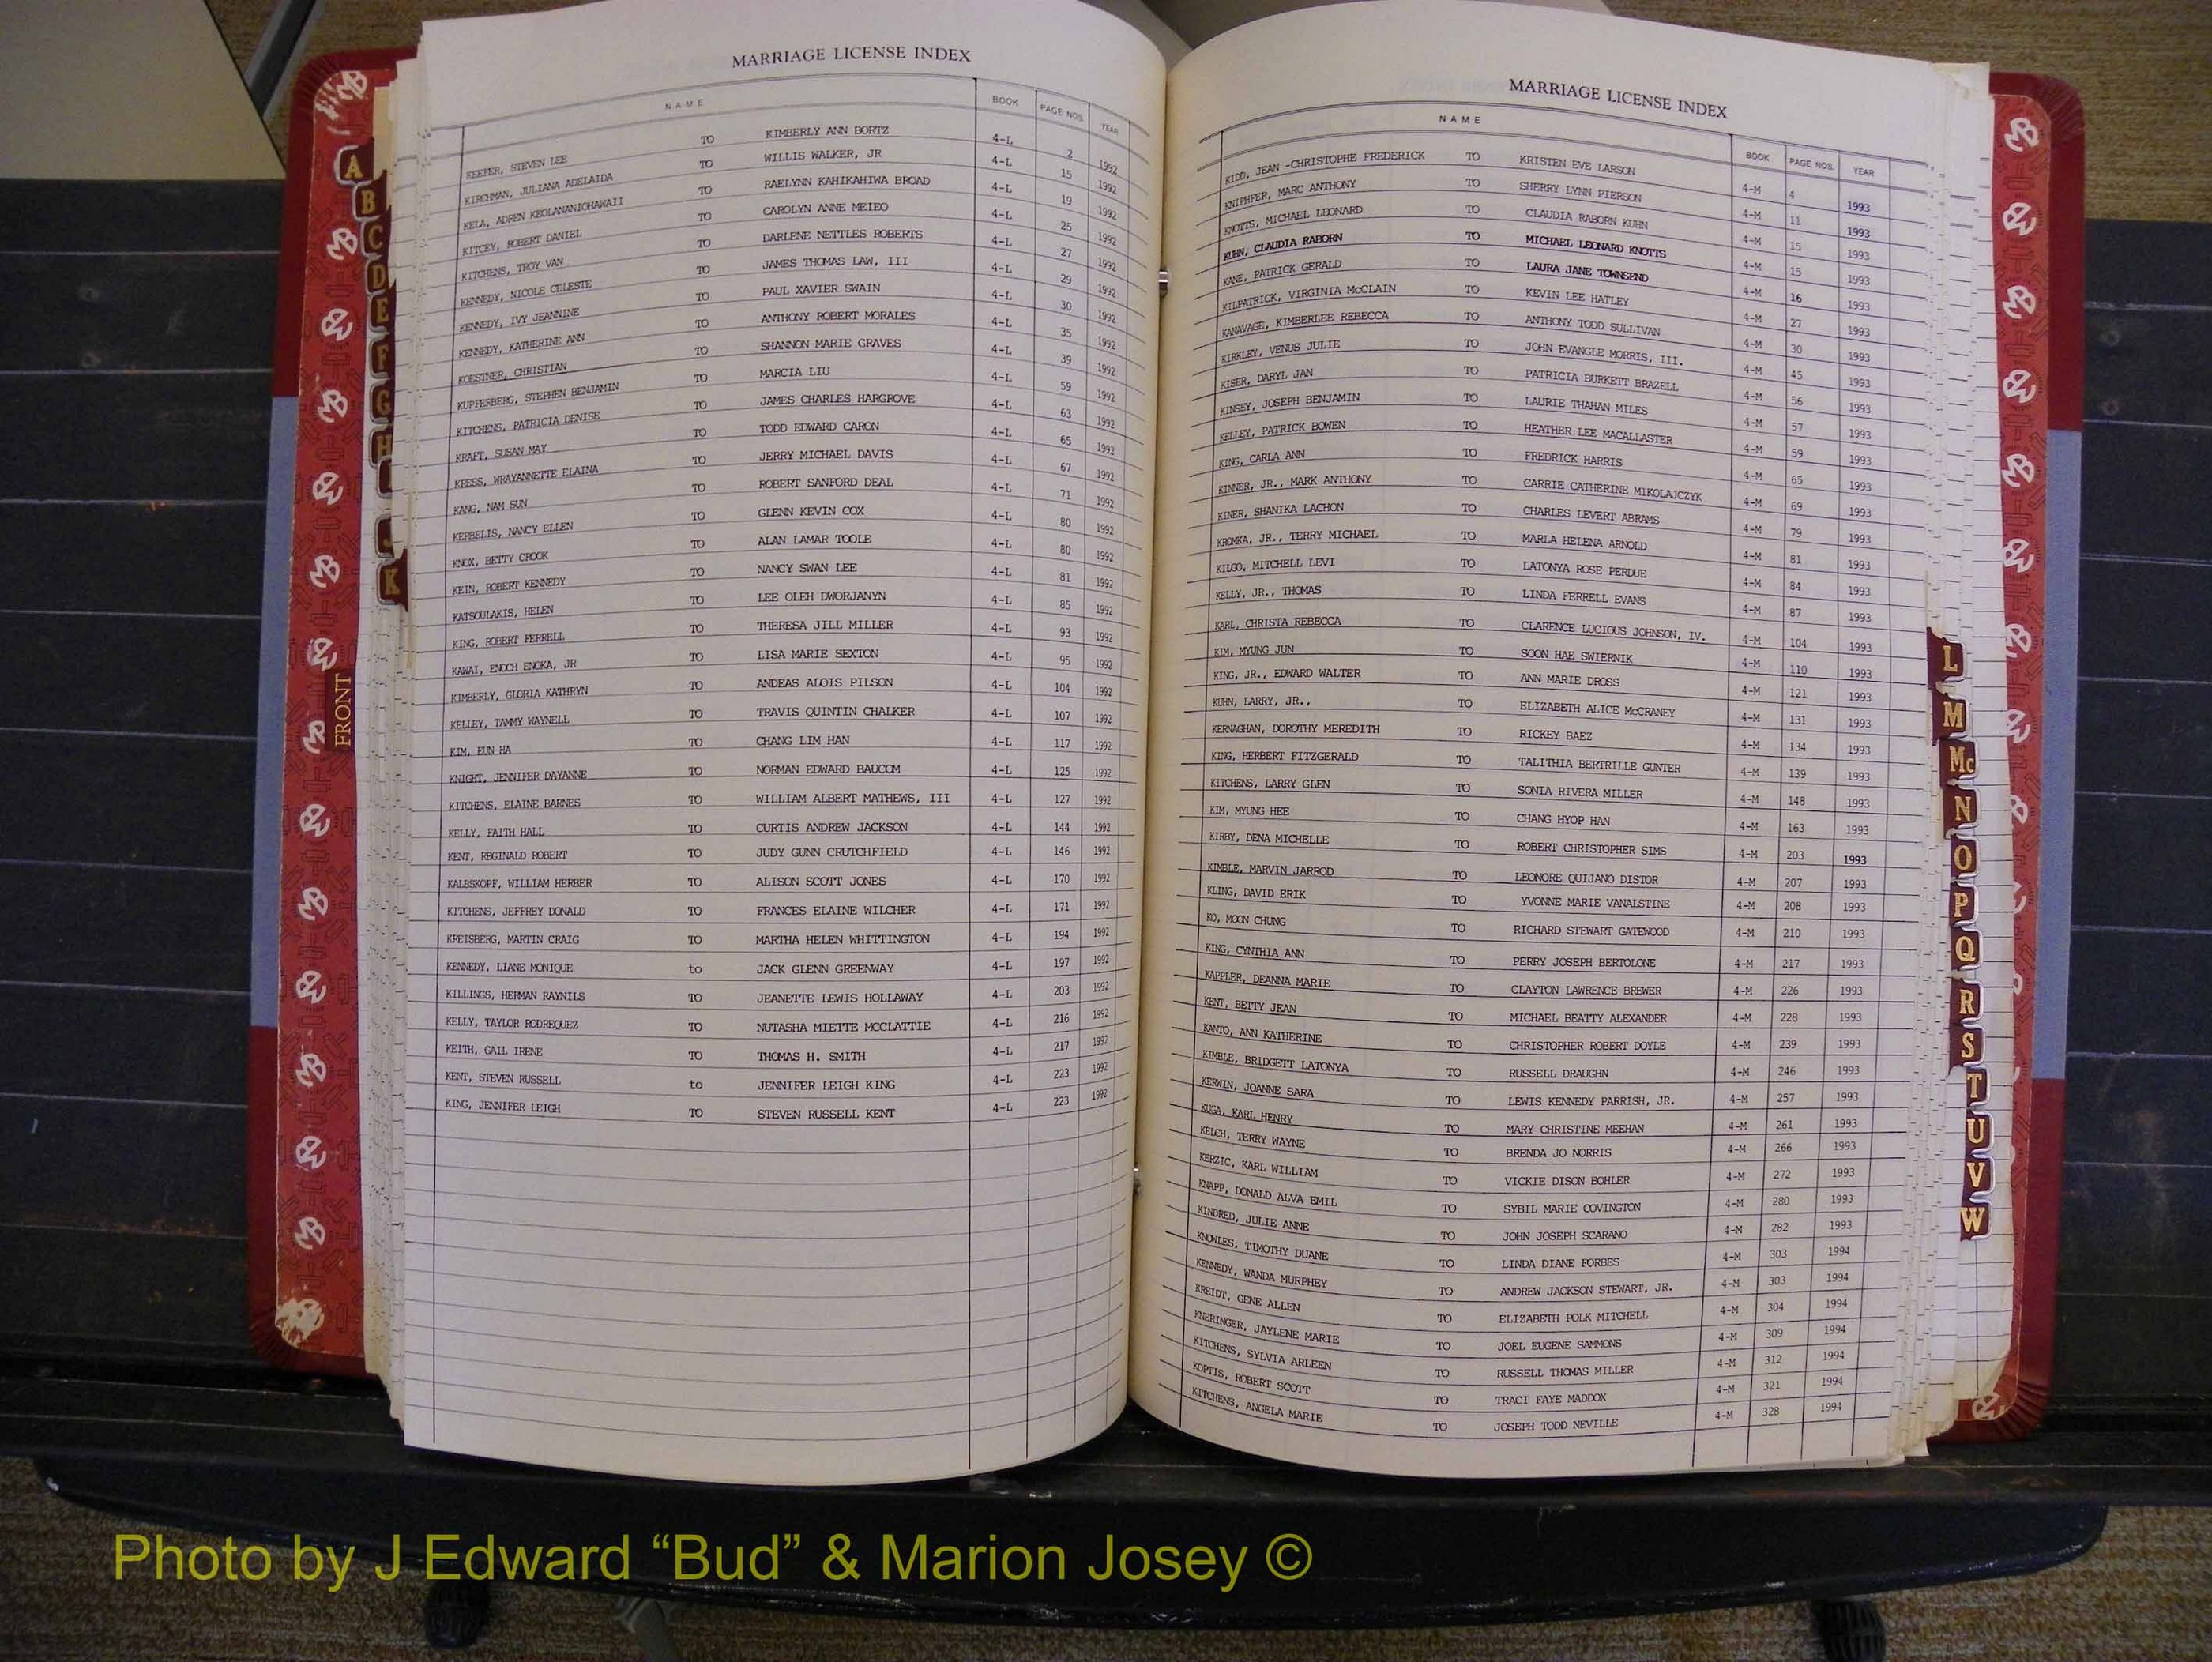 MARRIAGE LICENSE INDEX
NAME BOOK PAGE NOS. YEAR
KEEFER, STEVEN LEE TO KIMBERLY ANN BORTZ 4-L 2 1992
KIRCHMAN, JULIANA ADELAIDA TO WILLIS WALKER, JR 4-L 15 1992
KELA, ADREN KEOLANANIOHAWAII TO RAELYNN KAHIKAHIWA BROAD 4-L 19 1992
KITCEY, ROBERT DANIEL TO CAROLYN ANNE MEIEO 4-L 25 1992
KITCHENS, TROY VAN TO DARLENE NETTLES ROBERTS 4-L 27 1992
KENNEDY, NICOLE CELESTE TO JAMES THOMAS LAW, III 4-L 29 1992
KENNEDY, IVY JEANNINE TO PAUL XAVIER SWAIN 4-L 30 1992
KENNEDY, KATHERINE ANN TO ANTHONY ROBERT MORALES 4-L 35 1992
KOESTNER, CHRISTIAN TO SHANNON MARIE GRAVES 4-L 39 1992
KUPFERBERG, STEPHEN BENJAMIN TO MARCIA LIU 4-L 59 1992
KITCHENS, PATRICIA DENISE TO JAMES CHARLES HARGROVE 4-L 63 1992
KRAFT, SUSAN MAY TO TODD EDWARD CARON 4-L 65 1992
KRESS, WRAYANNETTE ELAINA TO JERRY MICHAEL DAVIS 4-L 67 1992
KANG, NAM SUN TO ROBERT SANFORD DEAL 4-L 71 1992
KERBELIS, NANCY ELLEN TO GLENN KEVIN COX 4-L 80 1992
KNOX, BETTY CROOK TO ALAN LAMAR TOOLE 4-L 80 1992
KEIN, ROBERT KENNEDY TO NANCY SWAN LEE 4-L 81 1992
KATSOULAKIS, HELEN TO LEE OLEH DWORJANYN 4-L 85 1992
KING, ROBERT FERRELL TO THERESA JILL MILLER 4-L 93 1992
KAWAI, ENOCH ENOKA, JR TO LISA MARIE SEXTON 4-L 95 1992
KIMBERLY, GLORIA KATHRYN TO ANDEAS ALOIS PILSON 4-L 104 1992
KELLEY, TAMMY WAYNELL TO TRAVIS QUINTIN CHALKER 4-L 107 1992
KIM, EUN HA TO CHANG LIM HAN 4-L 117 1992
KNIGHT, JENNIFER DAYANNE TO NORMAN EDWARD BAUCOM 4-L 125 1992
KITCHENS, ELAINE BARNES TO WILLIAM ALBERT MATHEWS, III 4-L 127 1992
KELLY, FAITH HALL TO CURTIS ANDREW JACKSON 4-L 144 1992
KENT, REGINALD ROBERT TO JUDY GUNN CRUTCHFIELD 4-L 146 1992
KALBSKOPF, WILLIAM HERBER TO ALISON SCOTT JONES 4-L 170 1992
KITCHENS, JEFFREY DONALD TO FRANCES ELAINE WILCHER 4-L 171 1992
KREISBERG, MARTIN CRAIG TO MARTHA HELEN WHITTINGTON 4-L 194 1992
KENNEDY, LIANE MONIQUE to JACK GLENN GREENWAY 4-L 197 1992
KILLINGS, HERMAN RAYNILS TO JEANETTE LEWIS HOLLAWAY 4-L 203 1992
KELLY, TAYLOR RODREQUEZ TO NUTASHA MIETTE MCCLATTIE 4-L 216 1992
KEITH, GAIL IRENE TO THOMAS H. SMITH 4-L 217 1992
KENT, STEVEN RUSSELL to JENNIFER LEIGH KING 4-L 223 1992
KING, JENNIFER LEIGH TO STEVEN RUSSELL KENT 4-L 223 1992
MARRIAGE LICENSE INDEX
NAME BOOK PAGE NOS. YEAR
KIDD, JEAN -CHRISTOPHE FREDERICK TO KRISTEN EVE LARSON 4-M 4 1993
KNIPHFER, MARC ANTHONY TO SHERRY LYNN PIERSON 4-M 11 1993
KNOTTS, MICHAEL LEONARD TO CLAUDIA RABORN KUHN 4-M 15 1993
KUHN, CLAUDIA RABORN TO MICHAEL LEONARD KNOTTS 4-M 15 1993
KANE, PATRICK GERALD TO LAURA JANE TOWNSEND 4-M 16 1993
KILPATRICK, VIRGINIA McCLAIN TO KEVIN LEE HATLEY 4-M 27 1993
KANAVAGE, KIMBERLEE REBECCA TO ANTHONY TODD SULLIVAN 4-M 30 1993
KIRKLEY, VENUS JULIE TO JOHN EVANGLE MORRIS, III. 4-M 45 1993
KISER, DARYL JAN TO PATRICIA BURKETT BRAZELL 4-M 56 1993
KINSEY, JOSEPH BENJAMIN TO LAURIE THAHAN MILES 4-M 57 1993
KELLEY, PATRICK BOWEN TO HEATHER LEE MACALLASTER 4-M 59 1993
KING, CARLA ANN TO FREDRICK HARRIS 4-M 65 1993
KINNER, JR., MARK ANTHONY TO CARRIE CATHERINE MIKOLAJCZYK 4-M 69 1993
KINER, SHANIKA LACHON TO CHARLES LEVERT ABRAMS 4-M 79 1993
KROMKA, JR., TERRY MICHAEL TO MARLA HELENA ARNOLD 4-M 81 1993
KILGO, MITCHELL LEVI TO LATONYA ROSE PERDUE 4-M 84 1993
KELLY, JR., THOMAS TO LINDA FERRELL EVANS 4-M 87 1993
KARL, CHRISTA REBECCA TO CLARENCE LUCIOUS JOHNSON, IV. 4-M 104 1993
KIM, MYUNG JUN TO SOON HAE SWIERNIK 4-M 110 1993
KING, JR., EDWARD WALTER TO ANN MARIE DROSS 4-M 121 1993
KUHN, LARRY, JR., TO ELIZABETH ALICE McCRANEY 4-M 131 1993
KERNAGHAN, DOROTHY MEREDITH TO RICKEY BAEZ 4-M 134 1993
KING, HERBERT FITZGERALD TO TALITHIA BERTRILLE GUNTER 4-M 139 1993
KITCHENS, LARRY GLEN TO SONIA RIVERA MILLER 4-M 148 1993
KIM, MYUNG HEE TO CHANG HYOP HAN 4-M 163 1993
KIRBY, DENA MICHELLE TO ROBERT CHRISTOPHER SIMS 4-M 203 1993
KIMBLE, MARVIN JARROD TO LEONORE QUIJANO DISTOR 4-M 207 1993
KLING, DAVID ERIK TO YVONNE MARIE VANALSTINE 4-M 208 1993
KO, MOON CHUNG TO RICHARD STEWART GATEWOOD 4-M 210 1993
KING, CYNTHIA ANN TO PERRY JOSEPH BERTOLONE 4-M 217 1993
KAPPLER, DEANNA MARIE TO CLAYTON LAWRENCE BREWER 4-M 226 1993
KENT, BETTY JEAN TO MICHAEL BEATTY ALEXANDER 4-M 228 1993
KANTO, ANN KATHERINE TO CHRISTOPHER ROBERT DOYLE 4-M 239 1993
KIMBLE, BRIDGETT LATONYA TO RUSSELL DRAUGHN 4-M 246 1993
KERWIN, JOANNE SARA TO LEWIS KENNEDY PARRISH, JR. 4-M 257 1993
KUGA, KARL HENRY TO MARY CHRISTINE MEEHAN 4-M 261 1993
KELCH, TERRY WAYNE TO BRENDA JO NORRIS 4-M 266 1993
KERZIC, KARL WILLIAM TO VICKIE DISON BOHLER 4-M 272 1993
KNAPP, DONALD ALVA EMIL TO SYBIL MARIE COVINGTON 4-M 280 1993
KINDRED, JULIE ANNE TO JOHN JOSEPH SCARANO 4-M 282 1993
KNOWLES, TIMOTHY DUANE TO LINDA DIANE FORBES 4-M 303 1994
KENNEDY, WANDA MURPHEY TO ANDREW JACKSON STEWART, JR. 4-M 303 1994
KREIDT, GENE ALLEN TO ELIZABETH POLK MITCHELL 4-M 304 1994
KNERINGER, JAYLENE MARIE TO JOEL EUGENE SAMMONS 4-M 309 1994
KITCHENS, SYLVIA ARLEEN TO RUSSELL THOMAS MILLER 4-M 312 1994
KOPTIS, ROBERT SCOTT TO TRACI FAYE MADDOX 4-M 321 1994
KITCHENS, ANGELA MARIE TO JOSEPH TODD NEVILLE 4-M 328 1994
A
B
C
D
E
F
G
H
J
K
FRONT
L
M
Mc
N
O
P
Q
R
S
T
U
V
W
Photo by J Edward “Bud” & Marion Josey ©